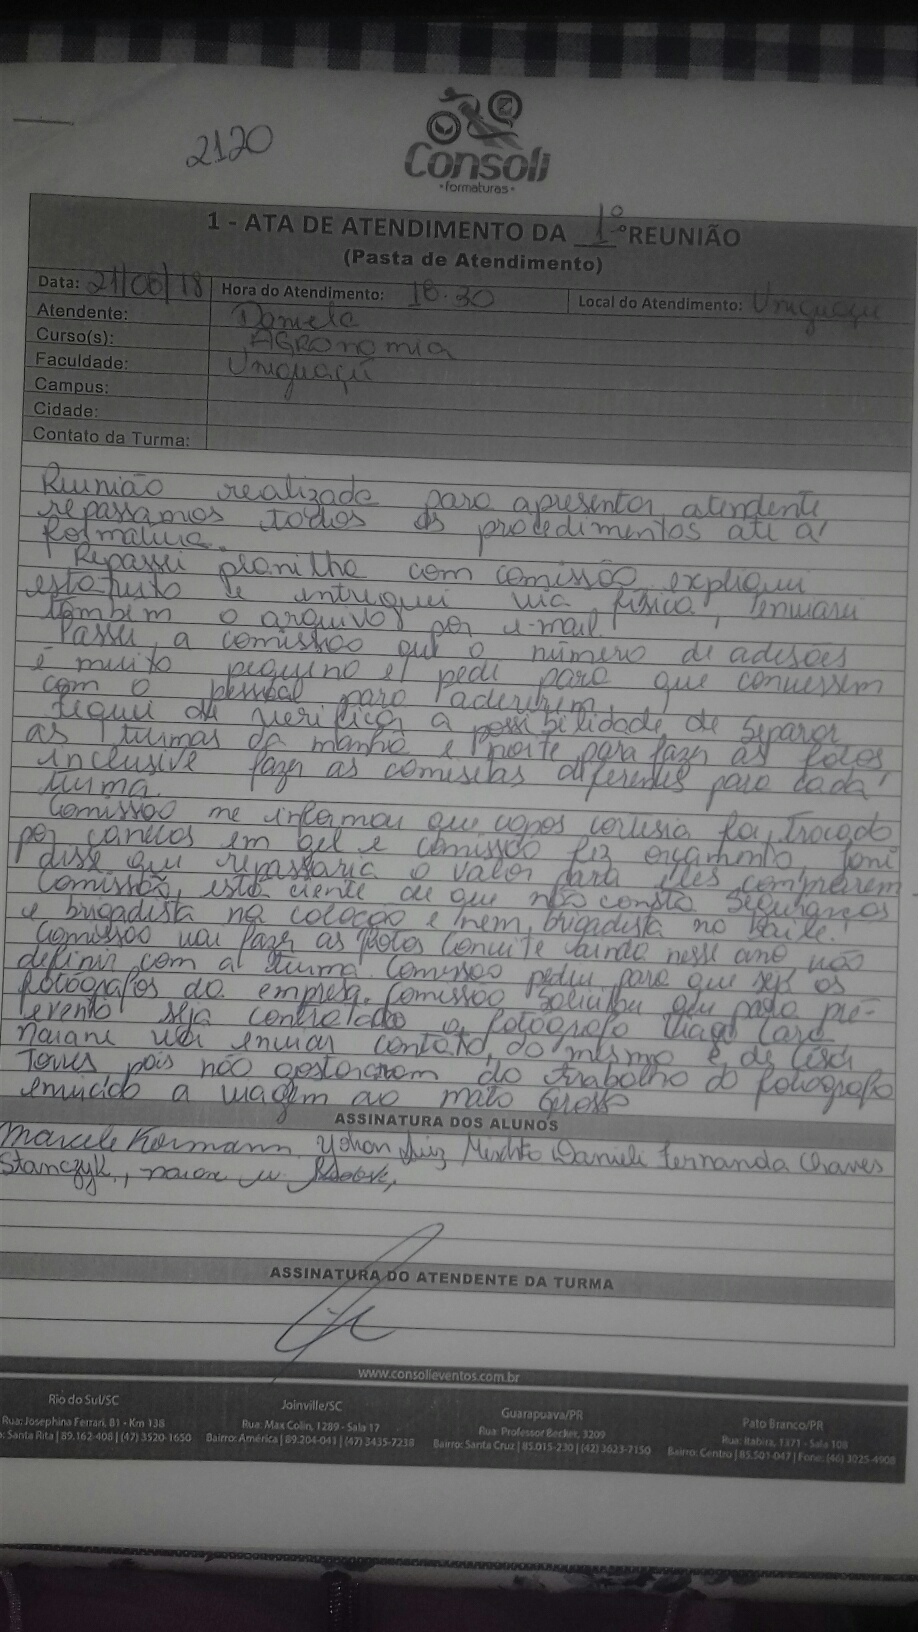 2120
Consoli
•formaturas•
1 - ATA DE ATENDIMENTO DA 1º ºREUNIÃO
(Pasta de Atendimento)
Data: 21/06/18 Hora do Atendimento: 18:30 Local do Atendimento: Uniguaçu
Atendente: Daniela
Curso(s): AGRonomia
Faculdade: Uniguaçu
Campus:
Cidade:
Contato da Turma:
Reunião realizada para apresentar atendente
repassamos todos os procedimentos até a
Formatura.
Repassei planilha com comissão, expliquei
estatuto e entreguei via física, enviarei
também o arquivo por e-mail.
Passei a comissão que o número de adesões
é muito pequeno e pedi para que conversem
com o pessoal para aderirem.
Fiquei de verificar a possibilidade de separar
as turmas da manhã e noite para fazer as fotos
inclusive fazer as camisetas diferentes para cada
turma.
Comissão me informou que copos foi trocado
por canecas em gel e comissão fez orçamento, Joni
disse que repassaria o valor para eles comprarem
Comissão está ciente de que não consta seguranças
e brigadista na colação e nem brigadista no baile.
Comissão vai fazer as fotos convite ainda nesse ano não
definir com a turma. Comissão pediu para que seja os
fotógrafos da empresa. Comissão solicitou que para pré-
evento seja contratado o fotógrafo Thiago
Naiane vai enviar contato do mesmo é de
pois não gostaram do trabalho do fotógrafo
enviado a viagem ao mato Grosso
ASSINATURA DOS ALUNOS
Marcele Kormann, Yohan Luiz Danieli Fernanda Chaves
Stanczyk,
ASSINATURA DO ATENDENTE DA TURMA
www.consolieventos.com.br
Rio do Sul/SC
Rua: Josephina Ferrari, 81 - Km 138
Santa Rita | 89.162-408 | (47) 3520-1650
Joinville/SC
Rua: Max Colin, 1289 - Sala 17
Bairro: América | 89.204-041 | (47) 3435-7238
Guarapuava/PR
Rua: Professor Becker, 3209
Bairro: Santa Cruz | 85.015-230 | (42) 3623-7150
Pato Branco/PR
Rua: Itabira, 1371 - Sala 108
Bairro: Centro | 85.501-047 | Fone: (46) 3225-4908